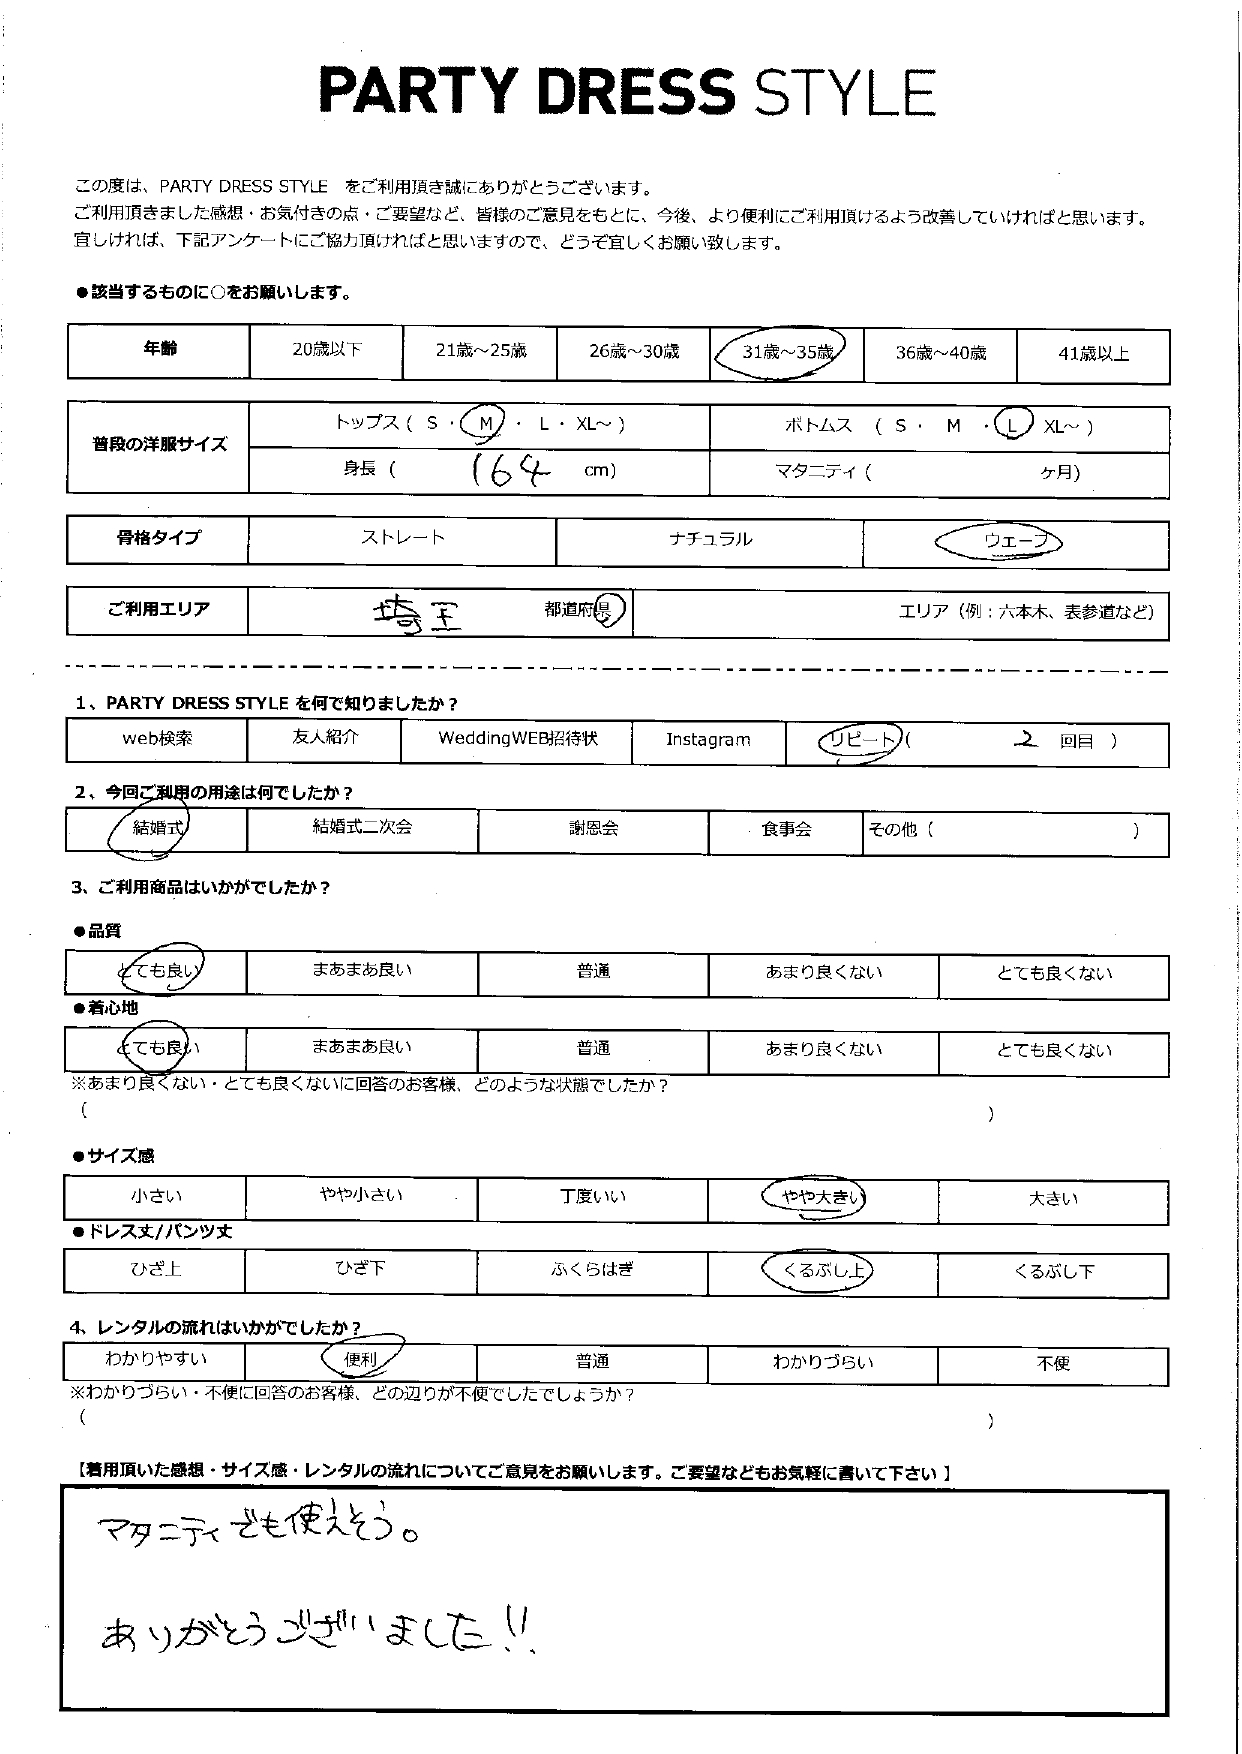 PARTY DRESS STYLE
この度は、PARTY DRESS STYLE をご利用頂き誠にありがとうございます。
ご利用頂きました感想・お気付きの点・ご要望など、皆様のご意見をもとに、今後、より便利にご利用頂けるよう改善していければと思います。
宜しければ、下記アンケートにご協力頂ければと思いますので、どうぞ宜しくお願い致します。
●該当するものに○をお願いします。
年齢 20歳以下 21歳～25歳 26歳～30歳 31歳～35歳 36歳～40歳 41歳以上
普段の洋服サイズ
トップス ( S ・ M ・ L ・ XL～ ) ボトムス ( S ・ M ・ L XL～ )
身長 ( 164 cm) マタニティ ( ケ月)
骨格タイプ ストレート ナチュラル ウェーブ
ご利用エリア 埼玉 都道府県 エリア（例：六本木、表参道など）
1、PARTY DRESS STYLE を何で知りましたか？
web検索 友人紹介 WeddingWEB招待状 Instagram リピート ( 2 回目 )
2、今回ご利用の用途は何でしたか？
結婚式 結婚式二次会 謝恩会 食事会 その他 ( )
3、ご利用商品はいかがでしたか？
●品質
とても良い まあまあ良い 普通 あまり良くない とても良くない
●着心地
とても良い まあまあ良い 普通 あまり良くない とても良くない
※あまり良くない・とても良くないに回答のお客様、どのような状態でしたか？
( )
●サイズ感
小さい やや小さい 丁度いい やや大きい 大きい
●ドレス丈/パンツ丈
ひざ上 ひざ下 ふくらはぎ くるぶし上 くるぶし下
4、レンタルの流れはいかがでしたか？
わかりやすい 便利 普通 わかりづらい 不便
※わかりづらい・不便に回答のお客様、どの辺りが不便でしたでしょうか？
( )
【着用頂いた感想・サイズ感・レンタルの流れについてご意見をお願いします。ご要望などもお気軽に書いて下さい 】
マタニティでも使えそう。
ありがとうございました!!